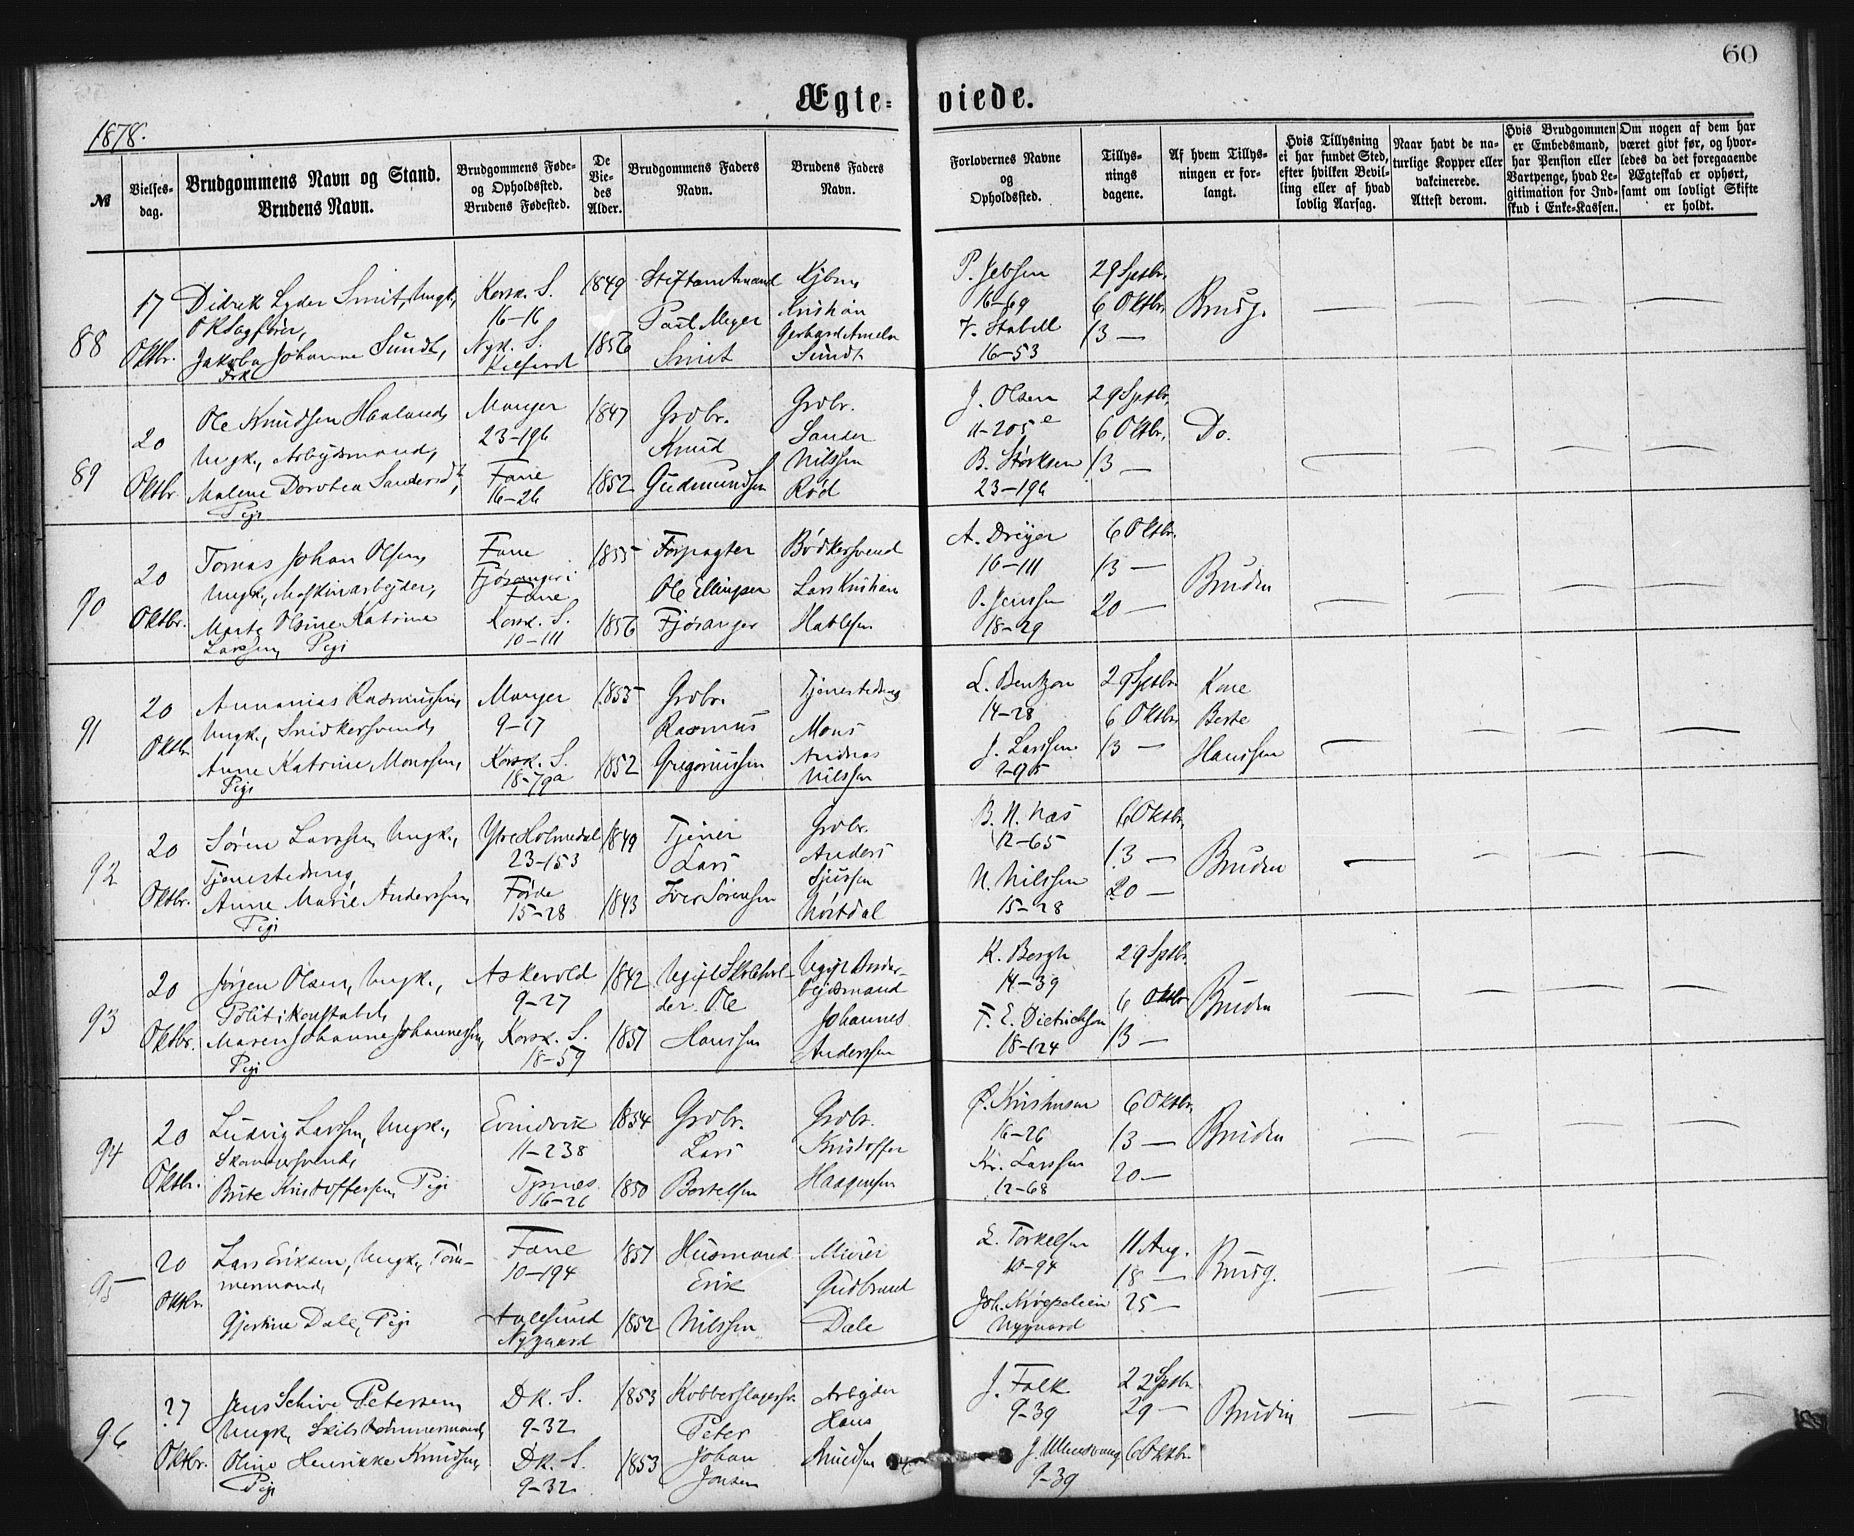 60
Ægte= viede.
1878.
№
Vielses-
dag.
Brudgommens Navn og Stand.
Brudens Navn.
Brudgommens Føde-
og Opholdssted.
Brudens Fødested.
De
Vie-
des
Alder.
Brudgommens Faders
Navn.
Brudens Faders
Navn.
Forlovernes Navne
og
Opholdssted.
Tillys-
nings
dagene.
Af hvem Tillys-
ningen er for-
langt.
Hvis Tillysning
ei har fundet Sted,
efter hvilken Bevil-
ling eller af hvad
lovlig Aarsag.
Naar havt de na-
turlige Kopper eller
vakcinerede.
Attest derom.
Hvis Brudgommen
er Embedsmand,
har Pension eller
Vartpenge, hvad Le-
gitimation for Ind-
skud i Enke-Kassen.
Om nogen af dem har
været givt før, og hvor-
ledes da det foregaaende
Ægteskab er ophørt,
samt om lovligt Skifte
er holdt.
88
17
Oktbr.
Didrik Lyder Smit, Ungk.,
Jakoba Johanne Sundt,
Frk.
Korsk. S.
16-16
Nyk. S.
1849
1856
Stiftamtmand
Paul Meyer
Smit
Kjbm.
Kristian
Sundt
P. Jebsen
16-69
F. Stabell
16-53
29 Sptbr.
6 Oktbr.
13 —
Brudg.
89
20
Oktbr.
Ole Knudsen Haaland,
Ungk., Arbejdsmand,
Malene Dorotea Sandersdt,
Pige
Manger
23-196
Fane
16-26
1847
1852
Grdbr.
Knud
Gudmundsen
Grdbr.
Sander
Nilssen
Rød
J. Olsen
11-205 e
B. Størksen
23-196
29 Sptbr.
6 Oktbr.
13 —
Do.
90
20
Oktbr.
Tomas Johan Olsen,
Ungk., Maskinarbejder,
Marta Olsine Katrine
Larssen, Pige
Fane
Fjøsanger i
Fane
Korsk. S.
10-111
1855
1856
Forpagter
Ole Ellingsen
Fjøsanger
Bødkersvend
Lars Kristian
A. Dreyer
16-111
O. Jenssen
18-29
6 Oktbr.
13 —
20 —
Bruden
91
20
Oktbr.
Annanias Rasmussen,
Ungk., Snidkersvend,
Anne Katrine Monssen,
Pige
Manger
9-17
Korsk. S.
18-79a
1855
1852
Grdbr.
Rasmus
Gregoriussen
Tjenestedreng
Mons
Andreas
Nilssen
L. Bentzon
14-28
J. Larssen
29 Sptbr.
6 Oktbr.
13 —
Kone
Berte
Hanssen
92
20
Oktbr.
Søren Larssen, Ungk.,
Tjenestedreng
Anne Marie Anderssen,
Pige
Ytre Holmedal
23-153
Førde
15-28
1849
1843
Tjener
Lars
Iver Sørensen
Grdbr.
Anders
Sjurssen
B. N. Næs
12-65
N. Nilssen
15-28
6 Oktbr.
13 —
20 —
Bruden
93
20
Oktbr.
Jørgen Olsen, Ungk.,
Politikonstabel,
Maren Johanne Johannessen,
Pige
Askevold
9-27
Korsk. S.
18-59
1842
1851
Ugift Skolehol-
der Ole
Hanssen
Ugift Buntar-
bejdsmand
Johannes
Anderssen
K. Bergh
14-39
F. E. Dietrichson
18-124
29 Sptbr.
6 Oktbr.
13 —
Bruden
94
20
Oktbr.
Ludvig Larssen, Ungk.,
Skomagersvend,
Brite Kristoffersen, Pige
Evindvik
11-238
16-26
1854
1850
Grdbr.
Lars
Bertelsen
Grdbr.
Kristoffer
Haagensen
16-26
Kr. Larssen
12-68
6 Oktbr.
13 —
20 —
Bruden
95
20
Oktbr.
Lars Eriksen, Ungk., Tøm-
mermand,
Gjertine Dale, Pige
Fane
10-194
Aalesund
Nygaard
1851
1852
Husmand
Erik
Nilssen
Murer
Gudbrand
Dale
E. Torkelsen
10-94
Nygaard
11 Aug.
18 —
25 —
Brudg.
96
27
Oktbr.
Jens Schive Petersen,
Ungk., Skibstømmermand,
Oline Henrikke Knudsen,
Pige
Dk. S.
9-32
Dk. S.
9-32
1853
1853
Kobberslagersv.
Peter
Johan
Jensen
Arbejder
Hans
Knudsen
J. Falk
9-39
J. Ullensvang
9-39
22 Sptbr.
29 —
6 Oktbr.
Bruden